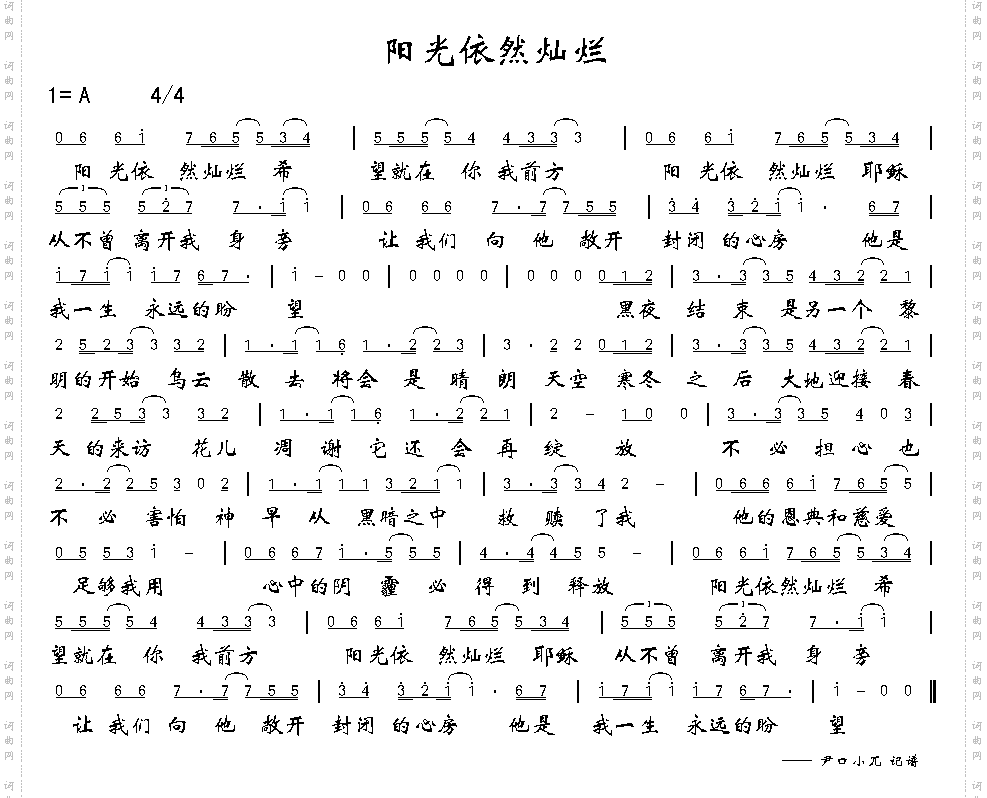 阳光依然灿烂
1=A 4/4
0 6 6 i 7 6 5 5 3 4 | 5 5 5 5 4 4 3 3 3 | 0 6 6 i 7 6 5 5 3 4 |
阳 光依 然灿烂 希 望就在 你 我前方 阳 光依 然灿烂 耶稣
5 5 5 5 2̇ 7 7 · i i | 0 6 6 6 7 · 7 7 5 5 | 3̇ 4̇ 3̇ 2̇ i i · 6 7 |
从不曾 离开我 身 旁 让 我们 向 他 敞开 封闭 的心房 他是
i 7 i i i 7 6 7 · | i – 0 0 | 0 0 0 0 | 0 0 0 0 1 2 | 3 · 3 3 5 4 3 2 2 1 |
我一生 永远的盼 望 黑夜 结 束 是另一个 黎
2 5 2 3 3 3 2 | 1 · 1 1 6̣ 1 · 2 2 3 | 3 · 2 2 0 1 2 | 3 · 3 3 5 4 3 2 2 1 |
明的开始 乌云 散 去 将会 是 晴 朗 天空 寒冬 之 后 大地迎接 春
2 2 5 3 3 3 2 | 1 · 1 1 6̣ 1 · 2 2 1 | 2 – 1 0 0 | 3 · 3 3 5 4 0 3 |
天 的来访 花儿 凋 谢 它 还 会 再 绽 放 不 必 担 心 也
2 · 2 2 5 3 0 2 | 1 · 1 1 1 3 2 1 1 | 3 · 3 3 4 2 – | 0 6 6 6 i 7 6 5 5 |
不 必 害怕 神 早 从 黑暗之中 救 赎 了我 他的恩典和慈爱
0 5 5 3 i – | 0 6 6 7 i · 5 5 5 | 4 · 4 4 5 5 – | 0 6 6 i 7 6 5 5 3 4 |
足够我用 心中的阴 霾 必 得 到 释放 阳光依然灿烂 希
5 5 5 5 4 4 3 3 3 | 0 6 6 i 7 6 5 5 3 4 | 5 5 5 5 2̇ 7 7 · i i |
望就在 你 我前方 阳光依 然灿烂 耶稣 从不曾 离开我 身 旁
0 6 6 6 7 · 7 7 5 5 | 3̇ 4̇ 3̇ 2̇ i i · 6 7 | i 7 i i i 7 6 7 · | i – 0 0 ‖
让 我们 向 他 敞开 封闭 的心房 他是 我一生 永远的盼 望
—— 尹口小兀 记谱